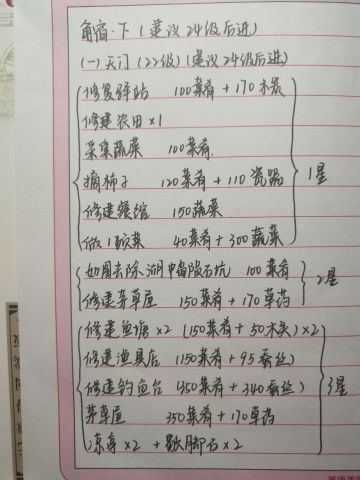 角宿·下（建议24级后进）
（一）天门（22级）（建议24级后进）
修复驿站 100菜肴+170木炭
修建农田×1
采集蔬菜 100菜肴
摘柿子 120菜肴+110瓷器
修建 150蔬菜
做1顿菜 40菜肴+300蔬菜
1星
如图去除湖中陨石坑 100菜肴
修建茅草屋 150菜肴+170草药
2星
修建鱼塘×2（150菜肴+50木头）×2
修建渔具店（150菜肴+95蚕丝）
修建钓鱼台（350菜肴+340蚕丝）
茅草屋 350菜肴+170草药
凉亭×2+歇脚石×2
3星